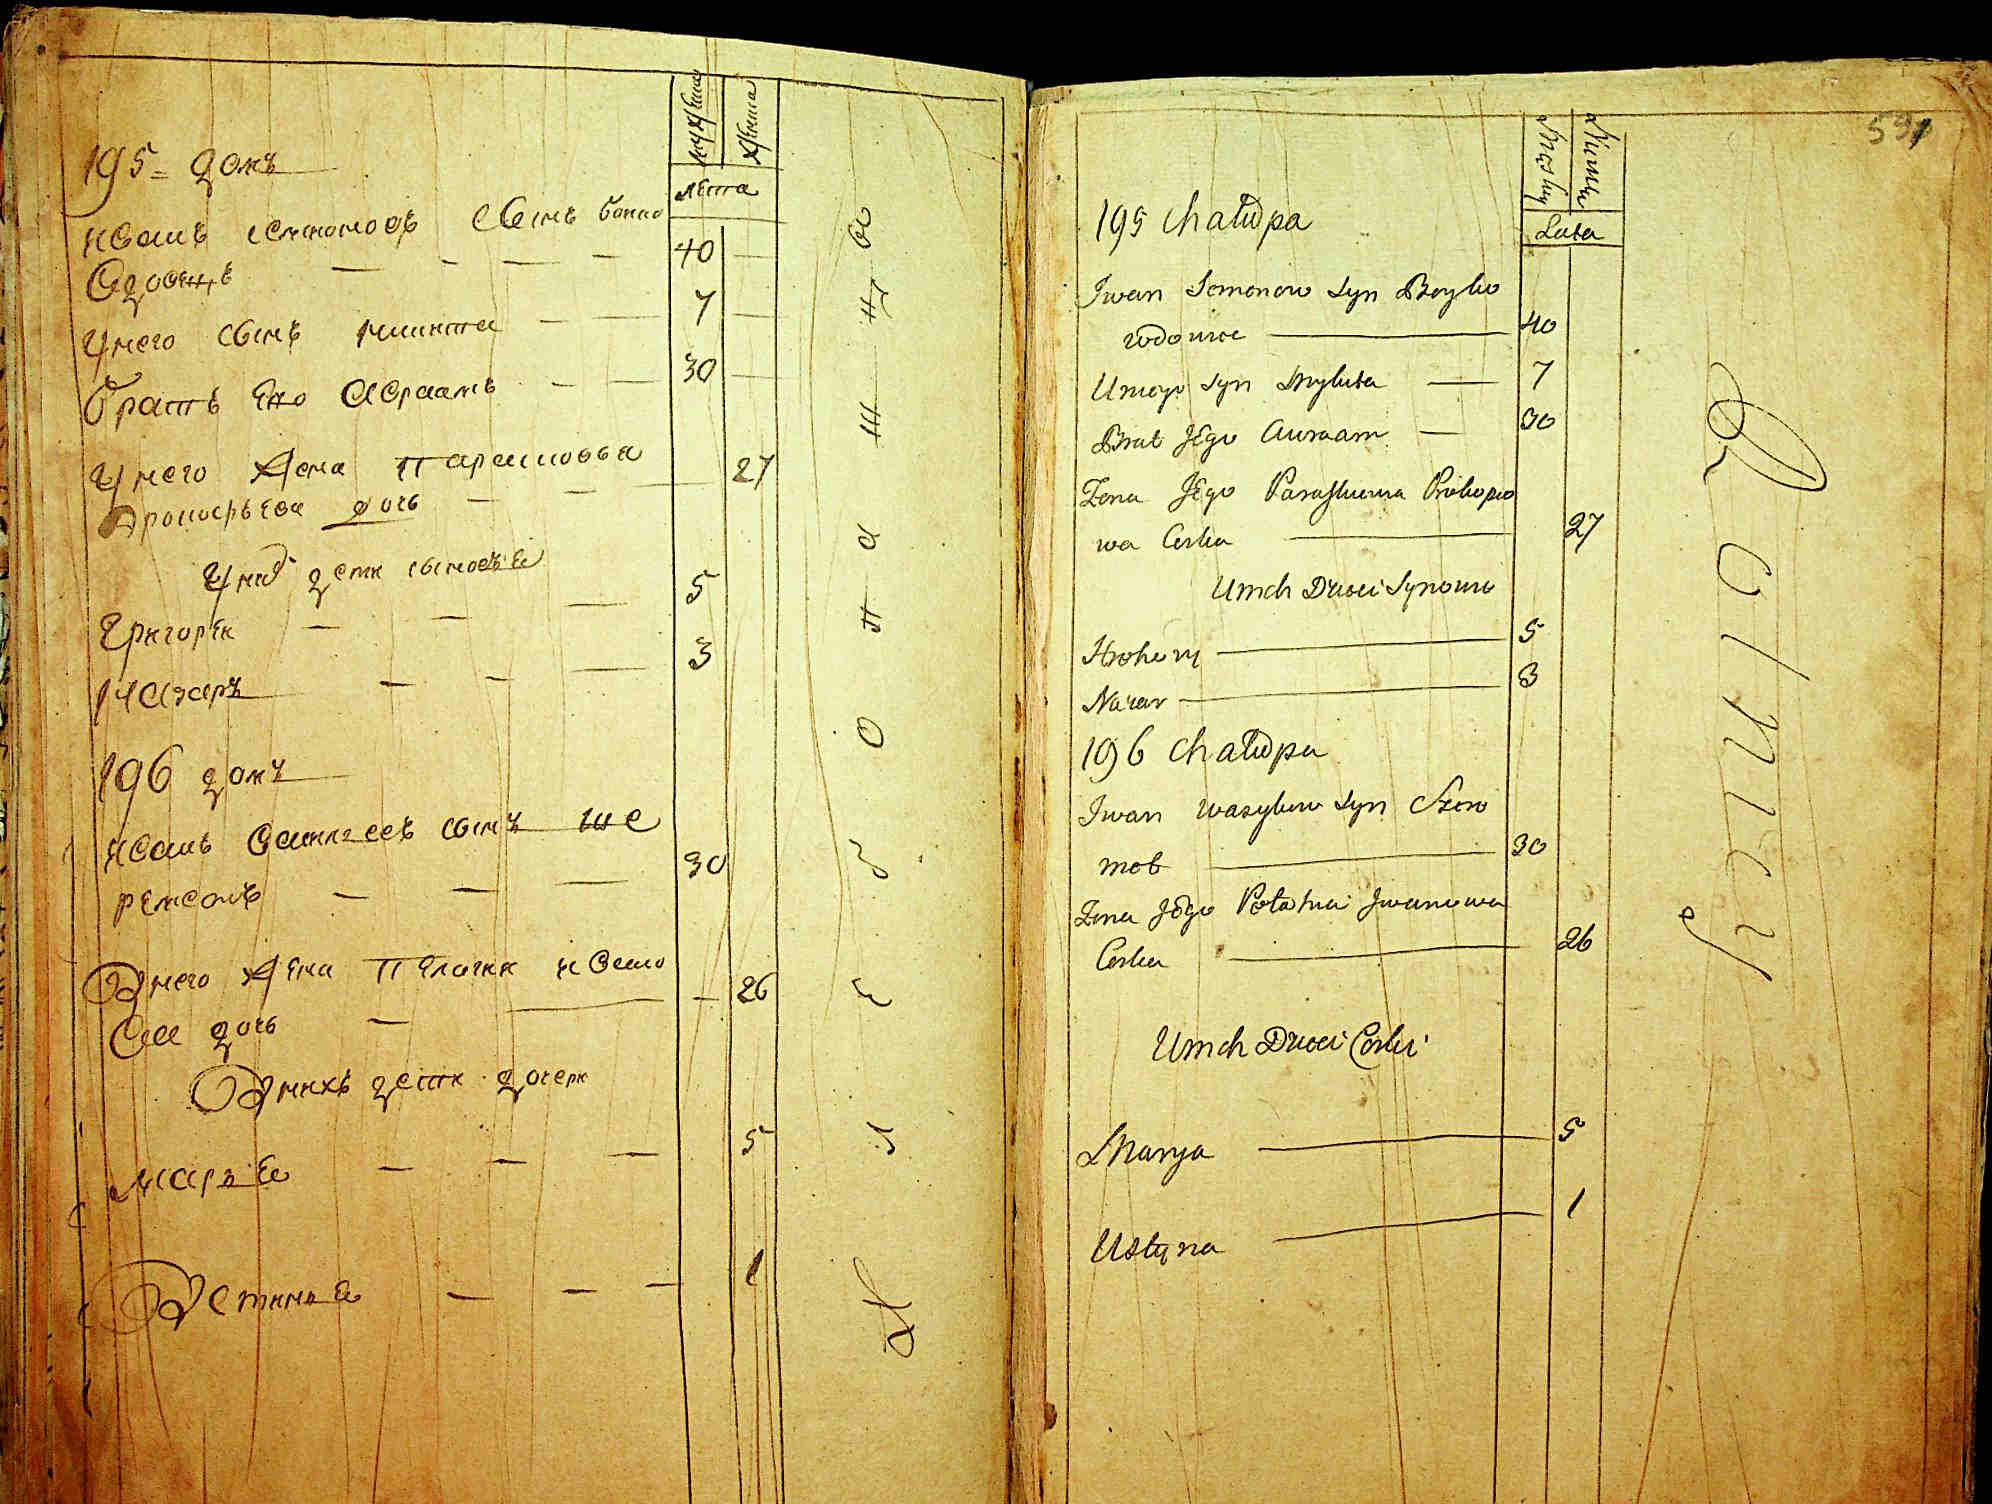 195 = домъ
мужеска
женска
лета
Иванъ семионовъ Сынъ боико
Вдовецъ 40
Унего сынъ микита 7
братъ Его Авраамъ 30
Унего Жена Парасковья
Прокофьева дочь 27
Уних дети сыновье
Григореи 5
Назаръ 3
196 домъ
иванъ Василеевъ сынъ ше
реметъ 30
Унего Жена Пелагия ивано
ва дочь 26
Унихъ дети дочери
марья 5
Устинья 1
Хлебопашца
591
Męska
Lata
195 Chałupa
Iwan Semenow Syn Boyko
wdowiec 40
Uniego Syn Mykita 7
Brat Jego Awraam 30
Żona Jego Paraskiewia Prokopio
wa Corka 27
Unich Dzieci Synowie
Hrehory 5
Nazar 3
196 Chałupa
Iwan Wasylow Syn Szere
met 30
Żona Jego Pełahia Iwanowa
Corka 26
Unich Dzieci Corki
Marya 5
Ustyna 1
Rolnicy